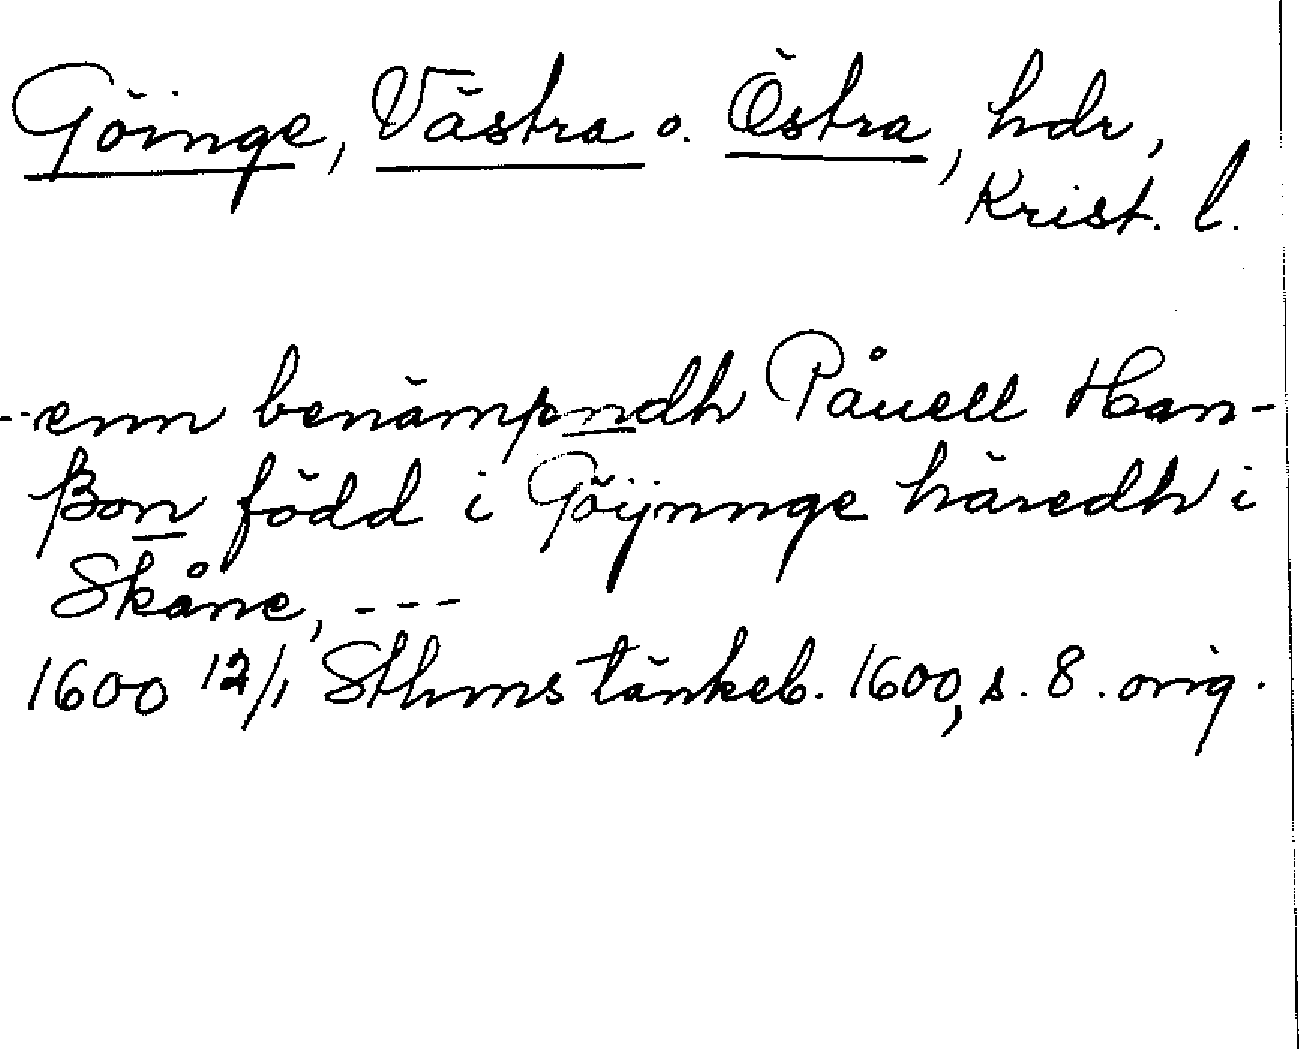 Göinge, Västra o. Östra, hdr,
Krist. l.
--enn benämpndh Påuell Han-
ßon född i Göijnnge häredh i
Skåne, ---
1600 12/1 Sthms tänkeb. 1600, s. 8. orig.